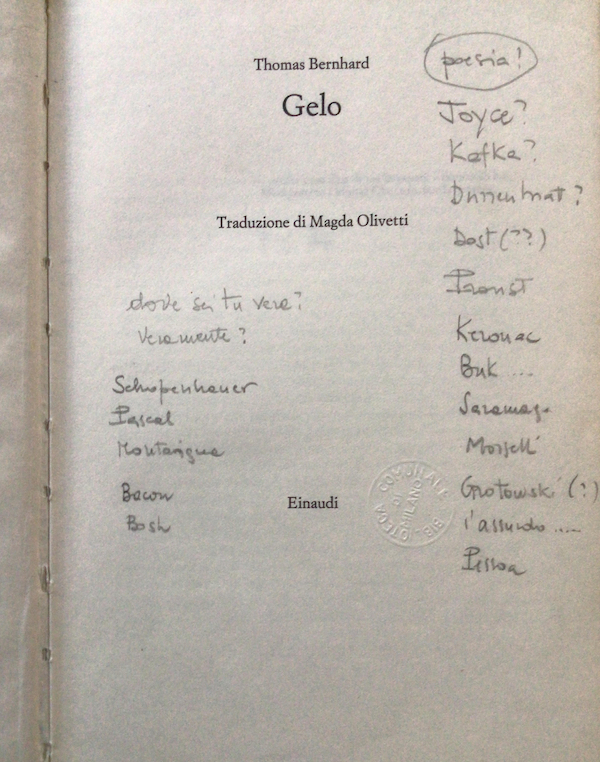 Thomas Bernhard
Gelo
Traduzione di Magda Olivetti
Einaudi
BIBLIOTECA COMUNALE
DI
MILANO
dove sei tu vera?
veramente?
Schopenhauer
Pascal
Montaigne
Bacon
Bosh
poesia!
Joyce?
Kafka?
Dost (??)
Proust
Kerouac
Buk ...
Saramago
Morselli
Grotowski (?)
l'assurdo ....
Pessoa